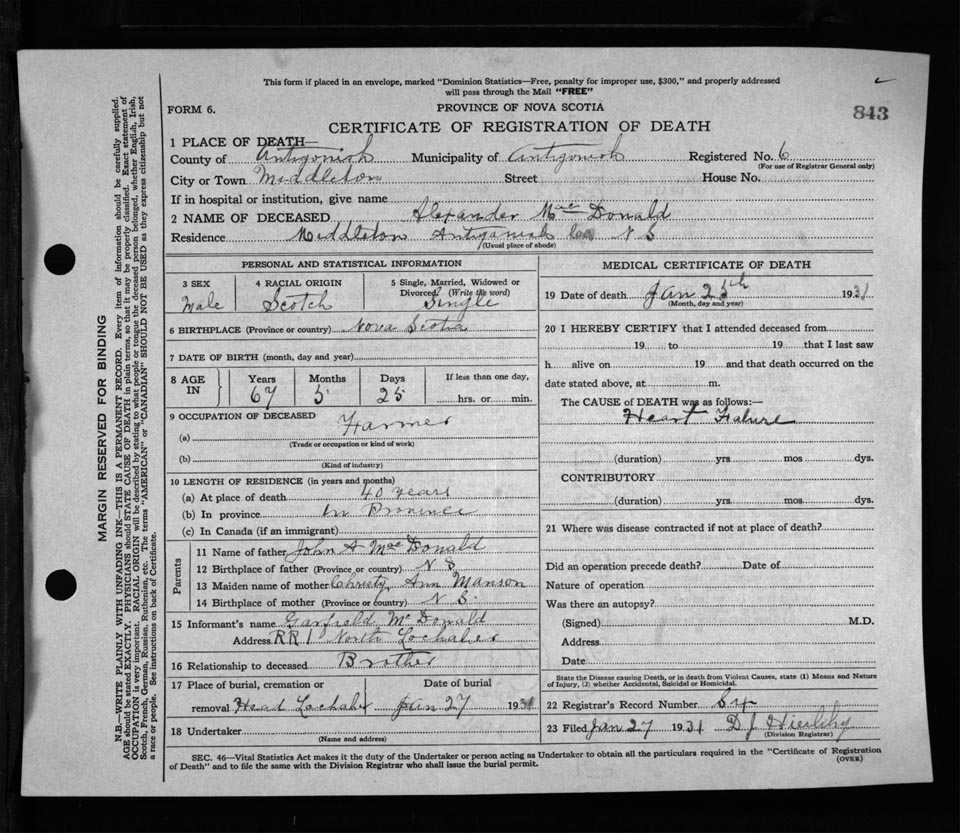 This form if placed in an envelope, marked "Dominion Statistics—Free, penalty for improper use, $300," and properly addressed
will pass through the Mail "FREE"
FORM 6.
PROVINCE OF NOVA SCOTIA
843
CERTIFICATE OF REGISTRATION OF DEATH
1 PLACE OF DEATH—
County of Antigonish Municipality of Antigonish Registered No. 6
(For use of Registrar General only)
City or Town Middleton Street House No.
If in hospital or institution, give name
2 NAME OF DECEASED Alexander MacDonald
Residence Middleton Antigonish Co N S
(Usual place of abode)
PERSONAL AND STATISTICAL INFORMATION
3 SEX 4 RACIAL ORIGIN 5 Single, Married, Widowed or
Divorced (Write the word)
Male Scotch Single
6 BIRTHPLACE (Province or country) Nova Scotia
7 DATE OF BIRTH (month, day and year)
8 AGE IN Years Months Days If less than one day,
67 5 25 hrs. or min.
9 OCCUPATION OF DECEASED
(a) Farmer
(Trade or occupation or kind of work)
(b)
(Kind of industry)
10 LENGTH OF RESIDENCE (in years and months)
(a) At place of death 40 years
(b) In province In Province
(c) In Canada (if an immigrant)
Parents
11 Name of father John A MacDonald
12 Birthplace of father (Province or country) N S
13 Maiden name of mother Christy Ann Manson
14 Birthplace of mother (Province or country) N S.
15 Informant's name Garfield McDonald
Address RR 1 North Lochaber
16 Relationship to deceased Brother
17 Place of burial, cremation or Date of burial
removal Head Lochaber Jan 27 1931
18 Undertaker
(Name and address)
MEDICAL CERTIFICATE OF DEATH
19 Date of death Jan 25th 1931
(Month, day and year)
20 I HEREBY CERTIFY that I attended deceased from
19 to 19 that I last saw
h alive on 19 and that death occurred on the
date stated above, at m.
The CAUSE OF DEATH was as follows:—
Heart Failure
(duration) yrs. mos dys.
CONTRIBUTORY
(duration) yrs. mos dys.
21 Where was disease contracted if not at place of death?
Did an operation precede death? Date of
Nature of operation
Was there an autopsy?
(Signed) M.D.
Address
Date
State the Disease causing Death, or in death from Violent Causes, state (1) Means and Nature
of Injury, (2) whether Accidental, Suicidal or Homicidal.
22 Registrar's Record Number
23 Filed Jan 27 1931 D J
(Division Registrar)
SEC. 46—Vital Statistics Act makes it the duty of the Undertaker or person acting as Undertaker to obtain all the particulars required in the "Certificate of Registration
of Death" and to file the same with the Division Registrar who shall issue the burial permit.
(OVER)
MARGIN RESERVED FOR BINDING
N.B.—WRITE PLAINLY WITH UNFADING INK—THIS IS A PERMANENT RECORD. Every item of information should be carefully supplied.
AGE should be stated EXACTLY. PHYSICIANS should STATE CAUSE OF DEATH in plain terms, so that it may be properly classified. Exact statement of
OCCUPATION is very important. RACIAL ORIGIN will be described by stating to what people or tongue the deceased person belonged, whether English, Irish,
Scotch, French, German, Russian, Ruthenian, etc. The terms "AMERICAN" or "CANADIAN" SHOULD NOT BE USED as they express citizenship but not
a race or people. See instructions on back of Certificate.